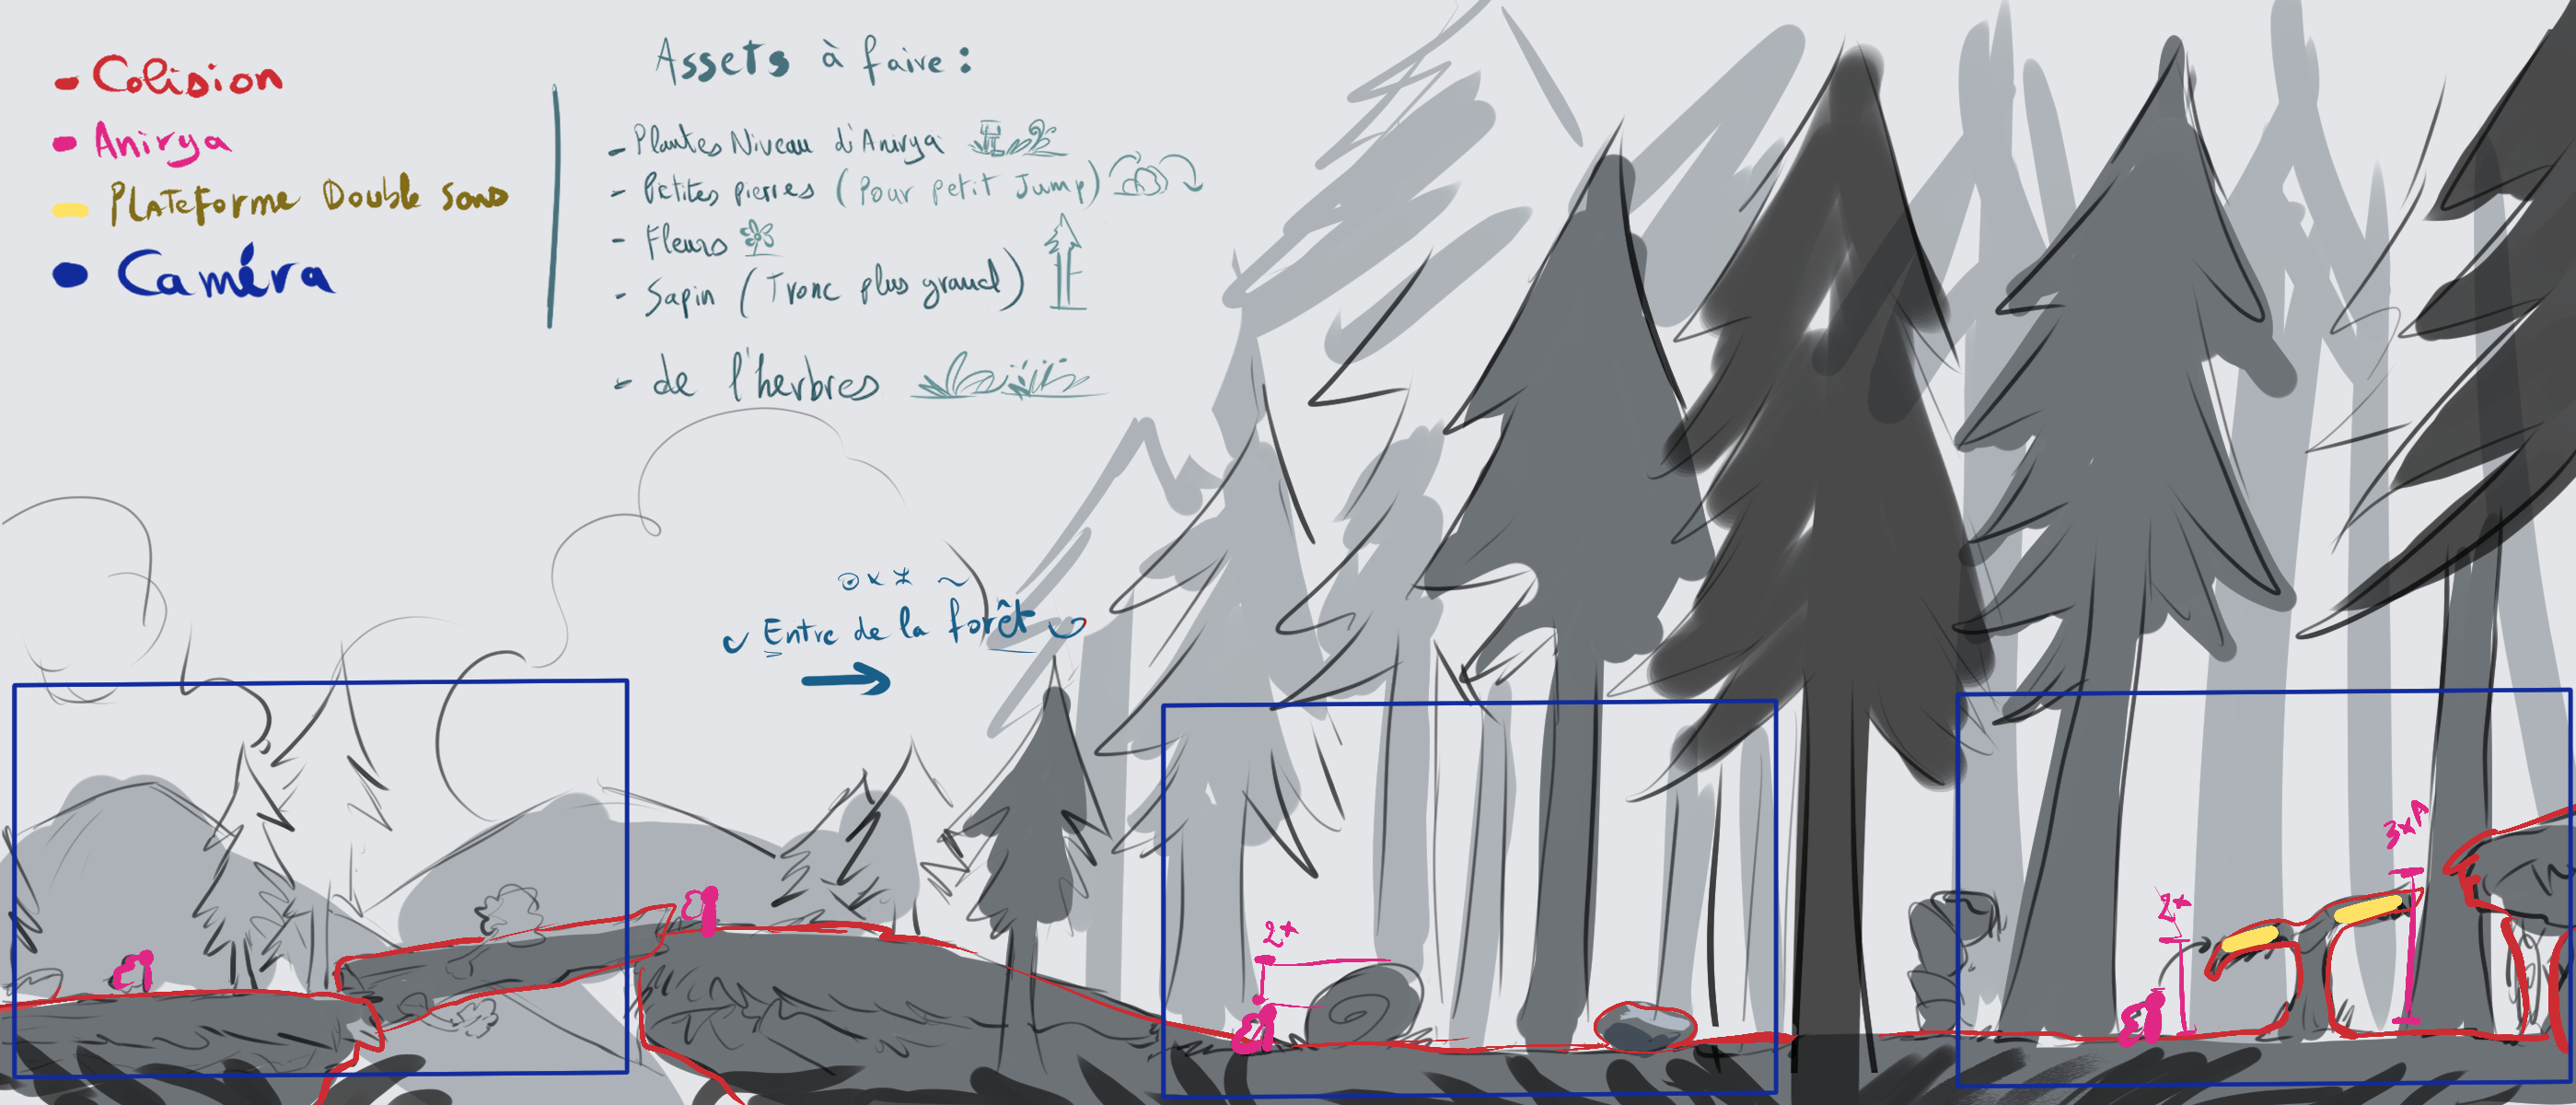 - Colision
- Anirya
- Plateforme Double sens
• Caméra
Assets à faire :
- Plantes Niveau d'Anirya
- Petites pierres (Pour petit Jump)
- Fleurs
- Sapin (Tronc plus grand)
- de l'herbres
Entre de la forêt
2x
2x
3xA